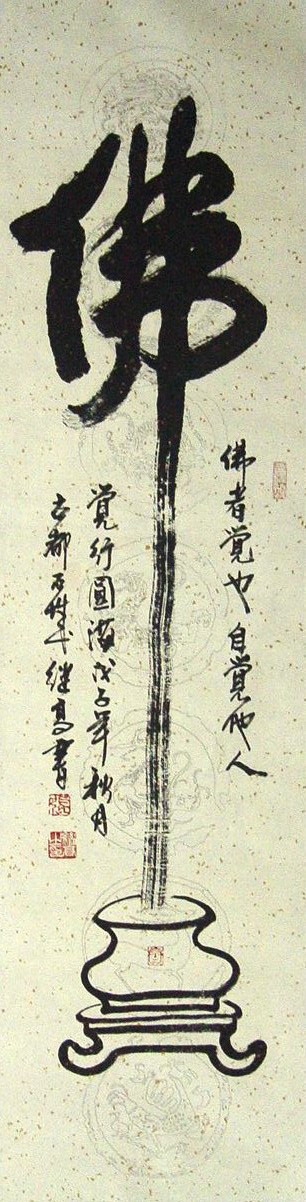 佛
佛者觉也自觉他人
觉行圆满戊子年秋月
古都百姓代继高书